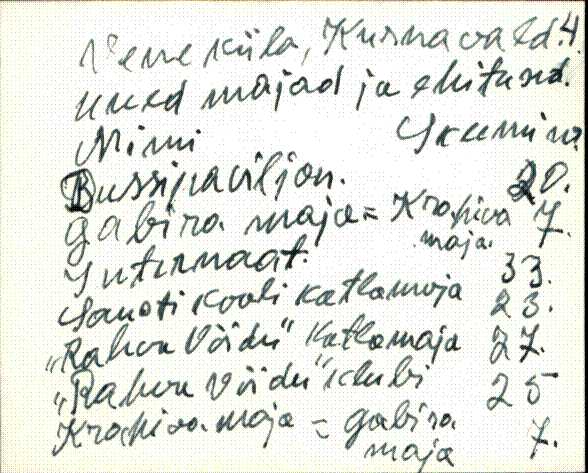 Veneküla, Kurna vald. 4.
uued majad ja ehitused.
Nimi Skeemi nr.
Bussipaviljon. 20.
Gabira maja = Krapiva maja. 7.
Internaat. 33.
Sanatikooli katlamaja 23.
"Rahva Võidu" katlamaja 27.
"Rahva Võidu" klubi 25
Krapiva maja = Gabira
maja 7.